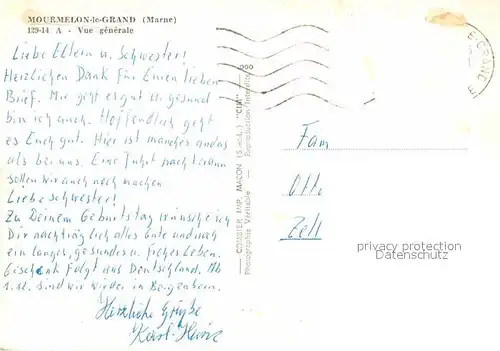 MOURMELON-le-GRAND (Marne)
129-14 A - Vue générale
Liebe Eltern u. Schwester!
Herzlichen Dank für Euren lieben
Brief. Mir geht es gut u. gesund
bin ich auch. Hoffendlich geht
es Euch gut. Hier ist manches anders
als bei uns. Eine Fahrt nach Verdun
sollen wir auch noch machen
Liebe Schwester!
Zu Deinem Geburtstag wünsche ich
Dir nachträglich alles Gute und noch
ein langes, gesundes u. frohes Leben.
Geschenk folgt aus Deutschland. Ab
1.12. sind wir wieder in
Herzliche Grüße
Karl-Heinz
COMBIER IMP. MACON (S.-et-L.) "CIM"
Photographie Véritable - Reproduction Interdite
E GRAND E
Fam
Otto
Zell
privacy protection
Datenschutz